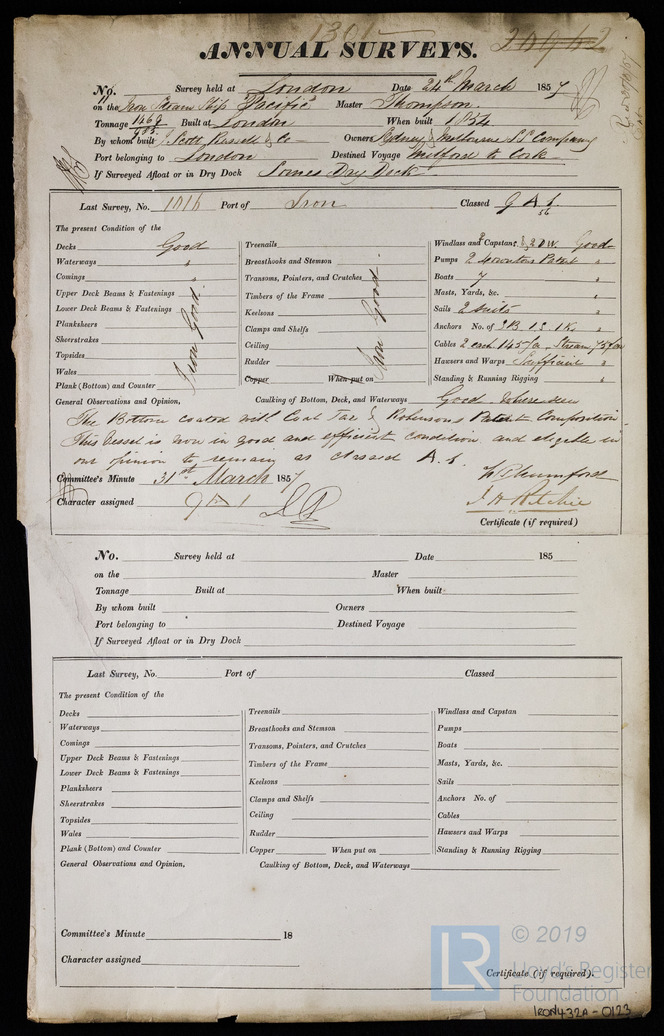 1301
20962
ANNUAL SURVEYS.
No. Survey held at London Date 24th March 1857
on the Iron Steam Ship Pacific Master Thompson.
Tonnage 1469 Built at London When built 1854
By whom built J. Scott Russell & Co Owners Sydney & Melbourne S.S. Company
Port belonging to London Destined Voyage Milford to Cork
If Surveyed Afloat or in Dry Dock Somes Dry Dock
Last Survey, No. 1016 Port of Iron Classed 9 A 1.
56
The present Condition of the
Decks Good
Waterways "
Comings "
Upper Deck Beams & Fastenings
Lower Deck Beams & Fastenings
Planksheers
Sheerstrakes
Topsides
Wales
Plank (Bottom) and Counter
Iron Good.
Treenails
Breasthooks and Stemson
Transoms, Pointers, and Crutches
Timbers of the Frame
Keelsons
Clamps and Shelfs
Ceiling
Rudder
Copper When put on
Iron Good.
Windlass and Capstans Good
Pumps 2 Patent "
Boats 7 "
Masts, Yards, &c. "
Sails 2 suits "
Anchors No. of 3B. 1S. 1K. "
Cables 2 each 145 fa. Stream 75 fa
Hawsers and Warps Sufficient "
Standing & Running Rigging "
General Observations and Opinion, Caulking of Bottom, Deck, and Waterways Good where seen
The Bottom coated with Coal Tar & Robinsons Patent Composition
This Vessel is now in good and efficient condition and eligible in
our opinion to remain as classed A 1.
Committee's Minute 31st March 1857
Character assigned 9 A 1
J. H. Ritchie
Certificate (if required)
No. Survey held at Date 185
on the Master
Tonnage Built at When built
By whom built Owners
Port belonging to Destined Voyage
If Surveyed Afloat or in Dry Dock
Last Survey, No. Port of Classed
The present Condition of the
Decks
Waterways
Comings
Upper Deck Beams & Fastenings
Lower Deck Beams & Fastenings
Planksheers
Sheerstrakes
Topsides
Wales
Plank (Bottom) and Counter
Treenails
Breasthooks and Stemson
Transoms, Pointers, and Crutches
Timbers of the Frame
Keelsons
Clamps and Shelfs
Ceiling
Rudder
Copper When put on
Windlass and Capstan
Pumps
Boats
Masts, Yards, &c.
Sails
Anchors No. of
Cables
Hawsers and Warps
Standing & Running Rigging
General Observations and Opinion, Caulking of Bottom, Deck, and Waterways
Committee's Minute 18
Character assigned
Certificate (if required).
LR
© 2019
Lloyd's Register
Foundation
IRON432A-0123